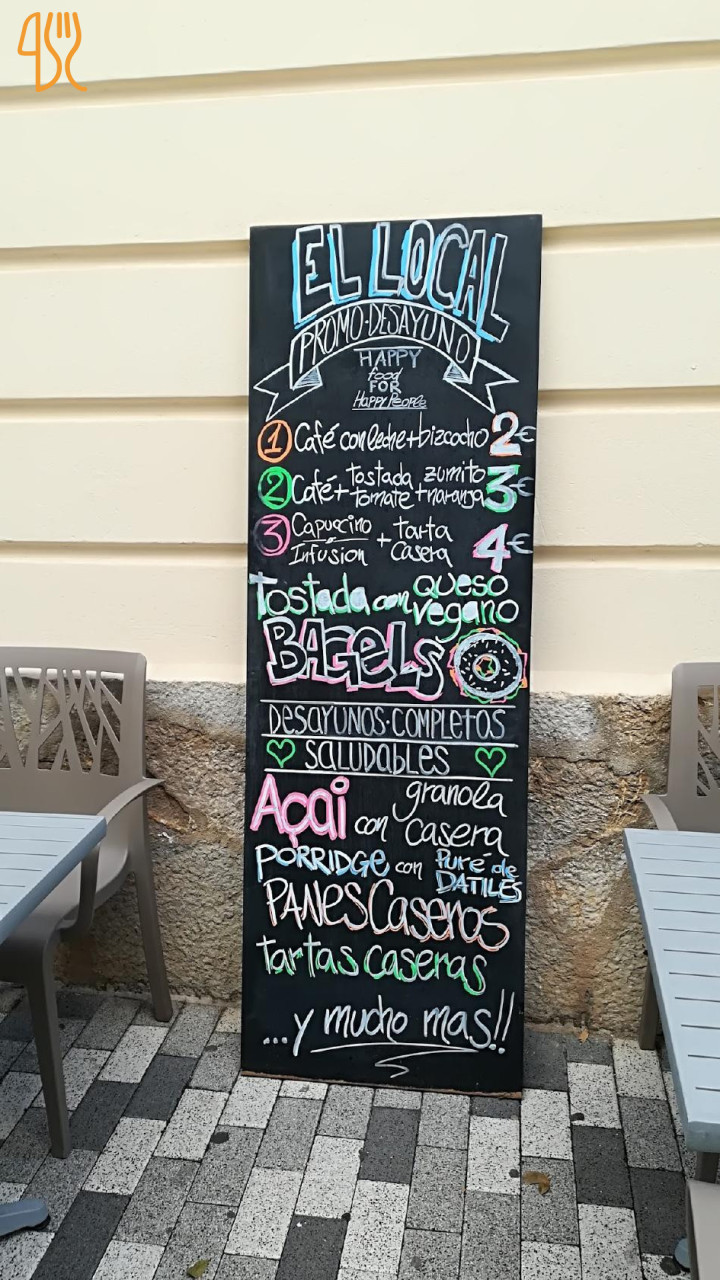 EL LOCAL
PROMO·DESAYUNO
HAPPY
food
FOR
HAPPY PEOPLE
1 Café con leche + bizcocho 2€
2 Café + tostada tomate + zumito naranja 3€
3 Capuccino Infusión + tarta casera 4€
Tostada con queso vegano
BAGELS
DESAYUNOS·COMPLETOS
SALUDABLES
Açai con granola casera
PORRIDGE con Puré de DATILES
PANES Caseros
tartas caseras
...y mucho mas!!